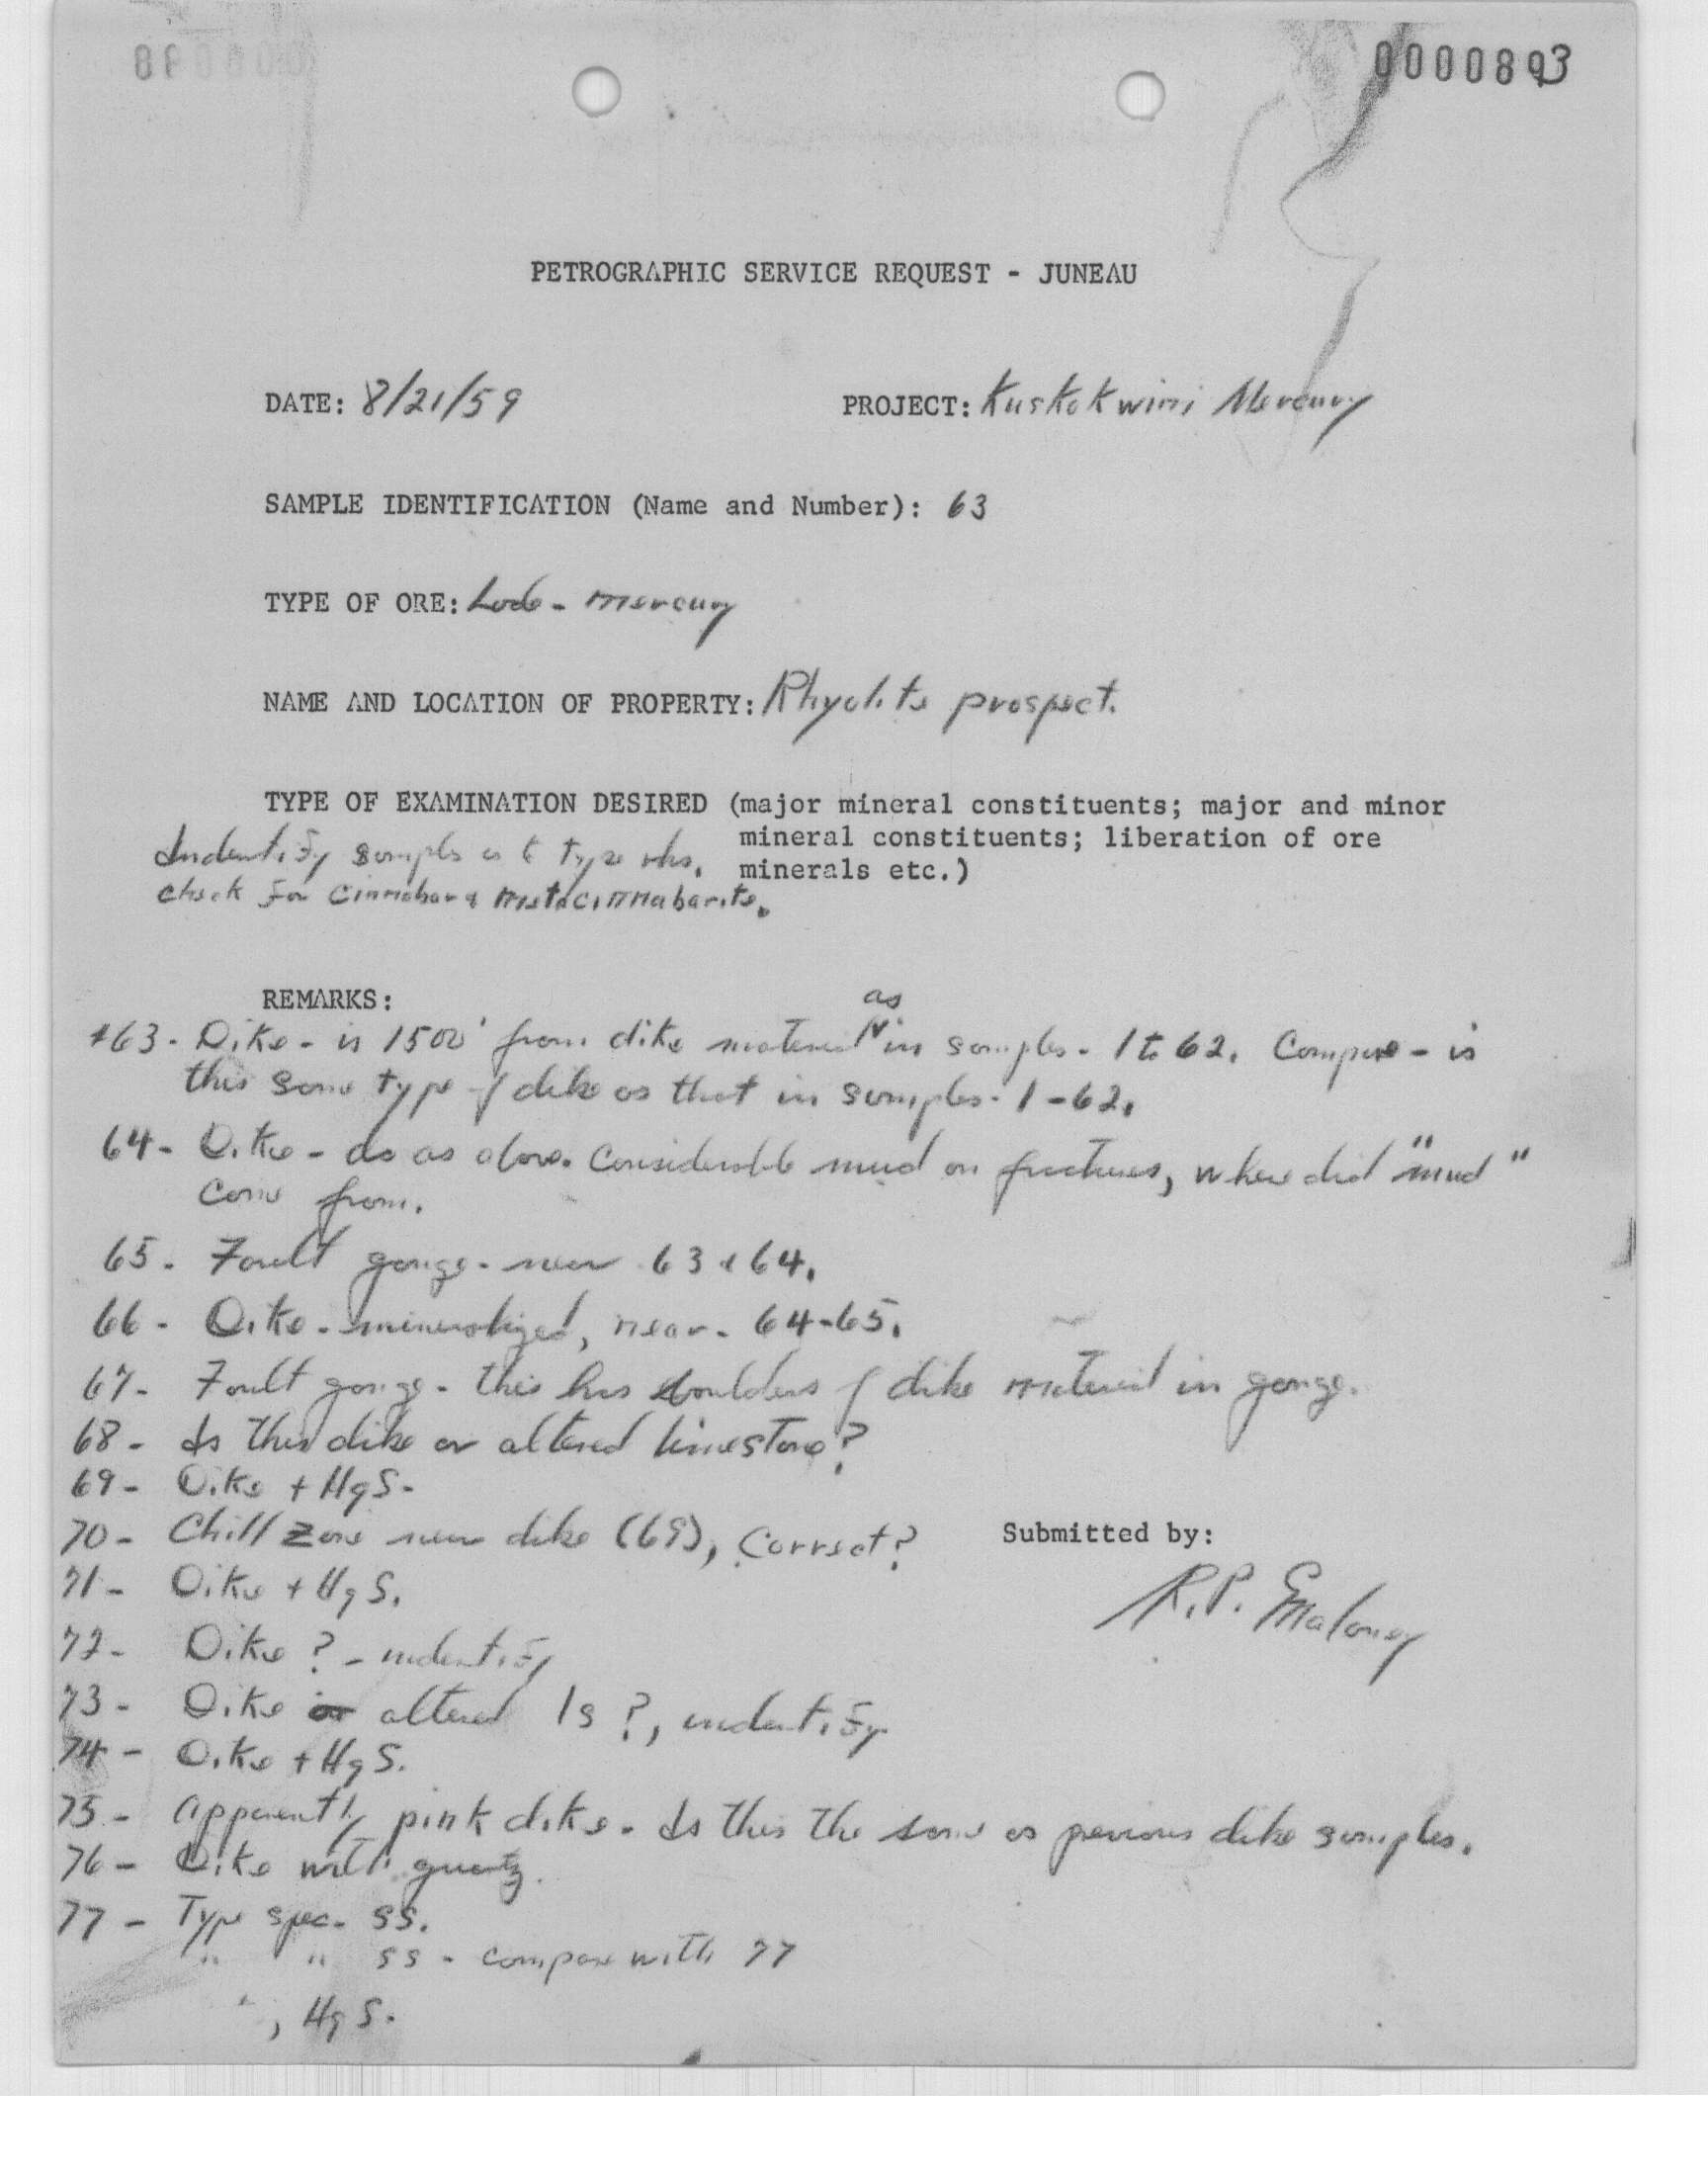 0000893
PETROGRAPHIC SERVICE REQUEST - JUNEAU
DATE: 8/21/59 PROJECT: Kuskokwim Mercury
SAMPLE IDENTIFICATION (Name and Number): 63
TYPE OF ORE: Lode - mercury
NAME AND LOCATION OF PROPERTY: Rhyolite prospect.
TYPE OF EXAMINATION DESIRED (major mineral constituents; major and minor
mineral constituents; liberation of ore
minerals etc.)
Indentify sample as to type
check for cinnabar & metacinnabarite.
REMARKS:
as
#63 - Dike - is 1500' from dike material in samples - 1 to 62. Compare - is
this same type of dike as that in samples - 1-62.
64 - Dike - do as above. Considerable mud on fractures, where did "mud"
come from.
65 - Fault gouge - near 63 & 64.
66 - Dike - mineralized, near - 64-65.
67 - Fault gouge - this has boulders of dike material in gouge.
68 - Is this dike or altered limestone?
69 - Dike + HgS.
70 - Chill zone near dike (69), Correct?
71 - Dike + HgS.
72 - Dike ? - indentify
73 - Dike or altered ls ?, indentify
74 - Dike + HgS.
75 - Apparently pink dike - Is this the same as previous dike samples.
76 - Dike with quartz.
77 - Type spec. SS.
" " SS - compare with 77
, HgS.
Submitted by:
R.P. Maloney